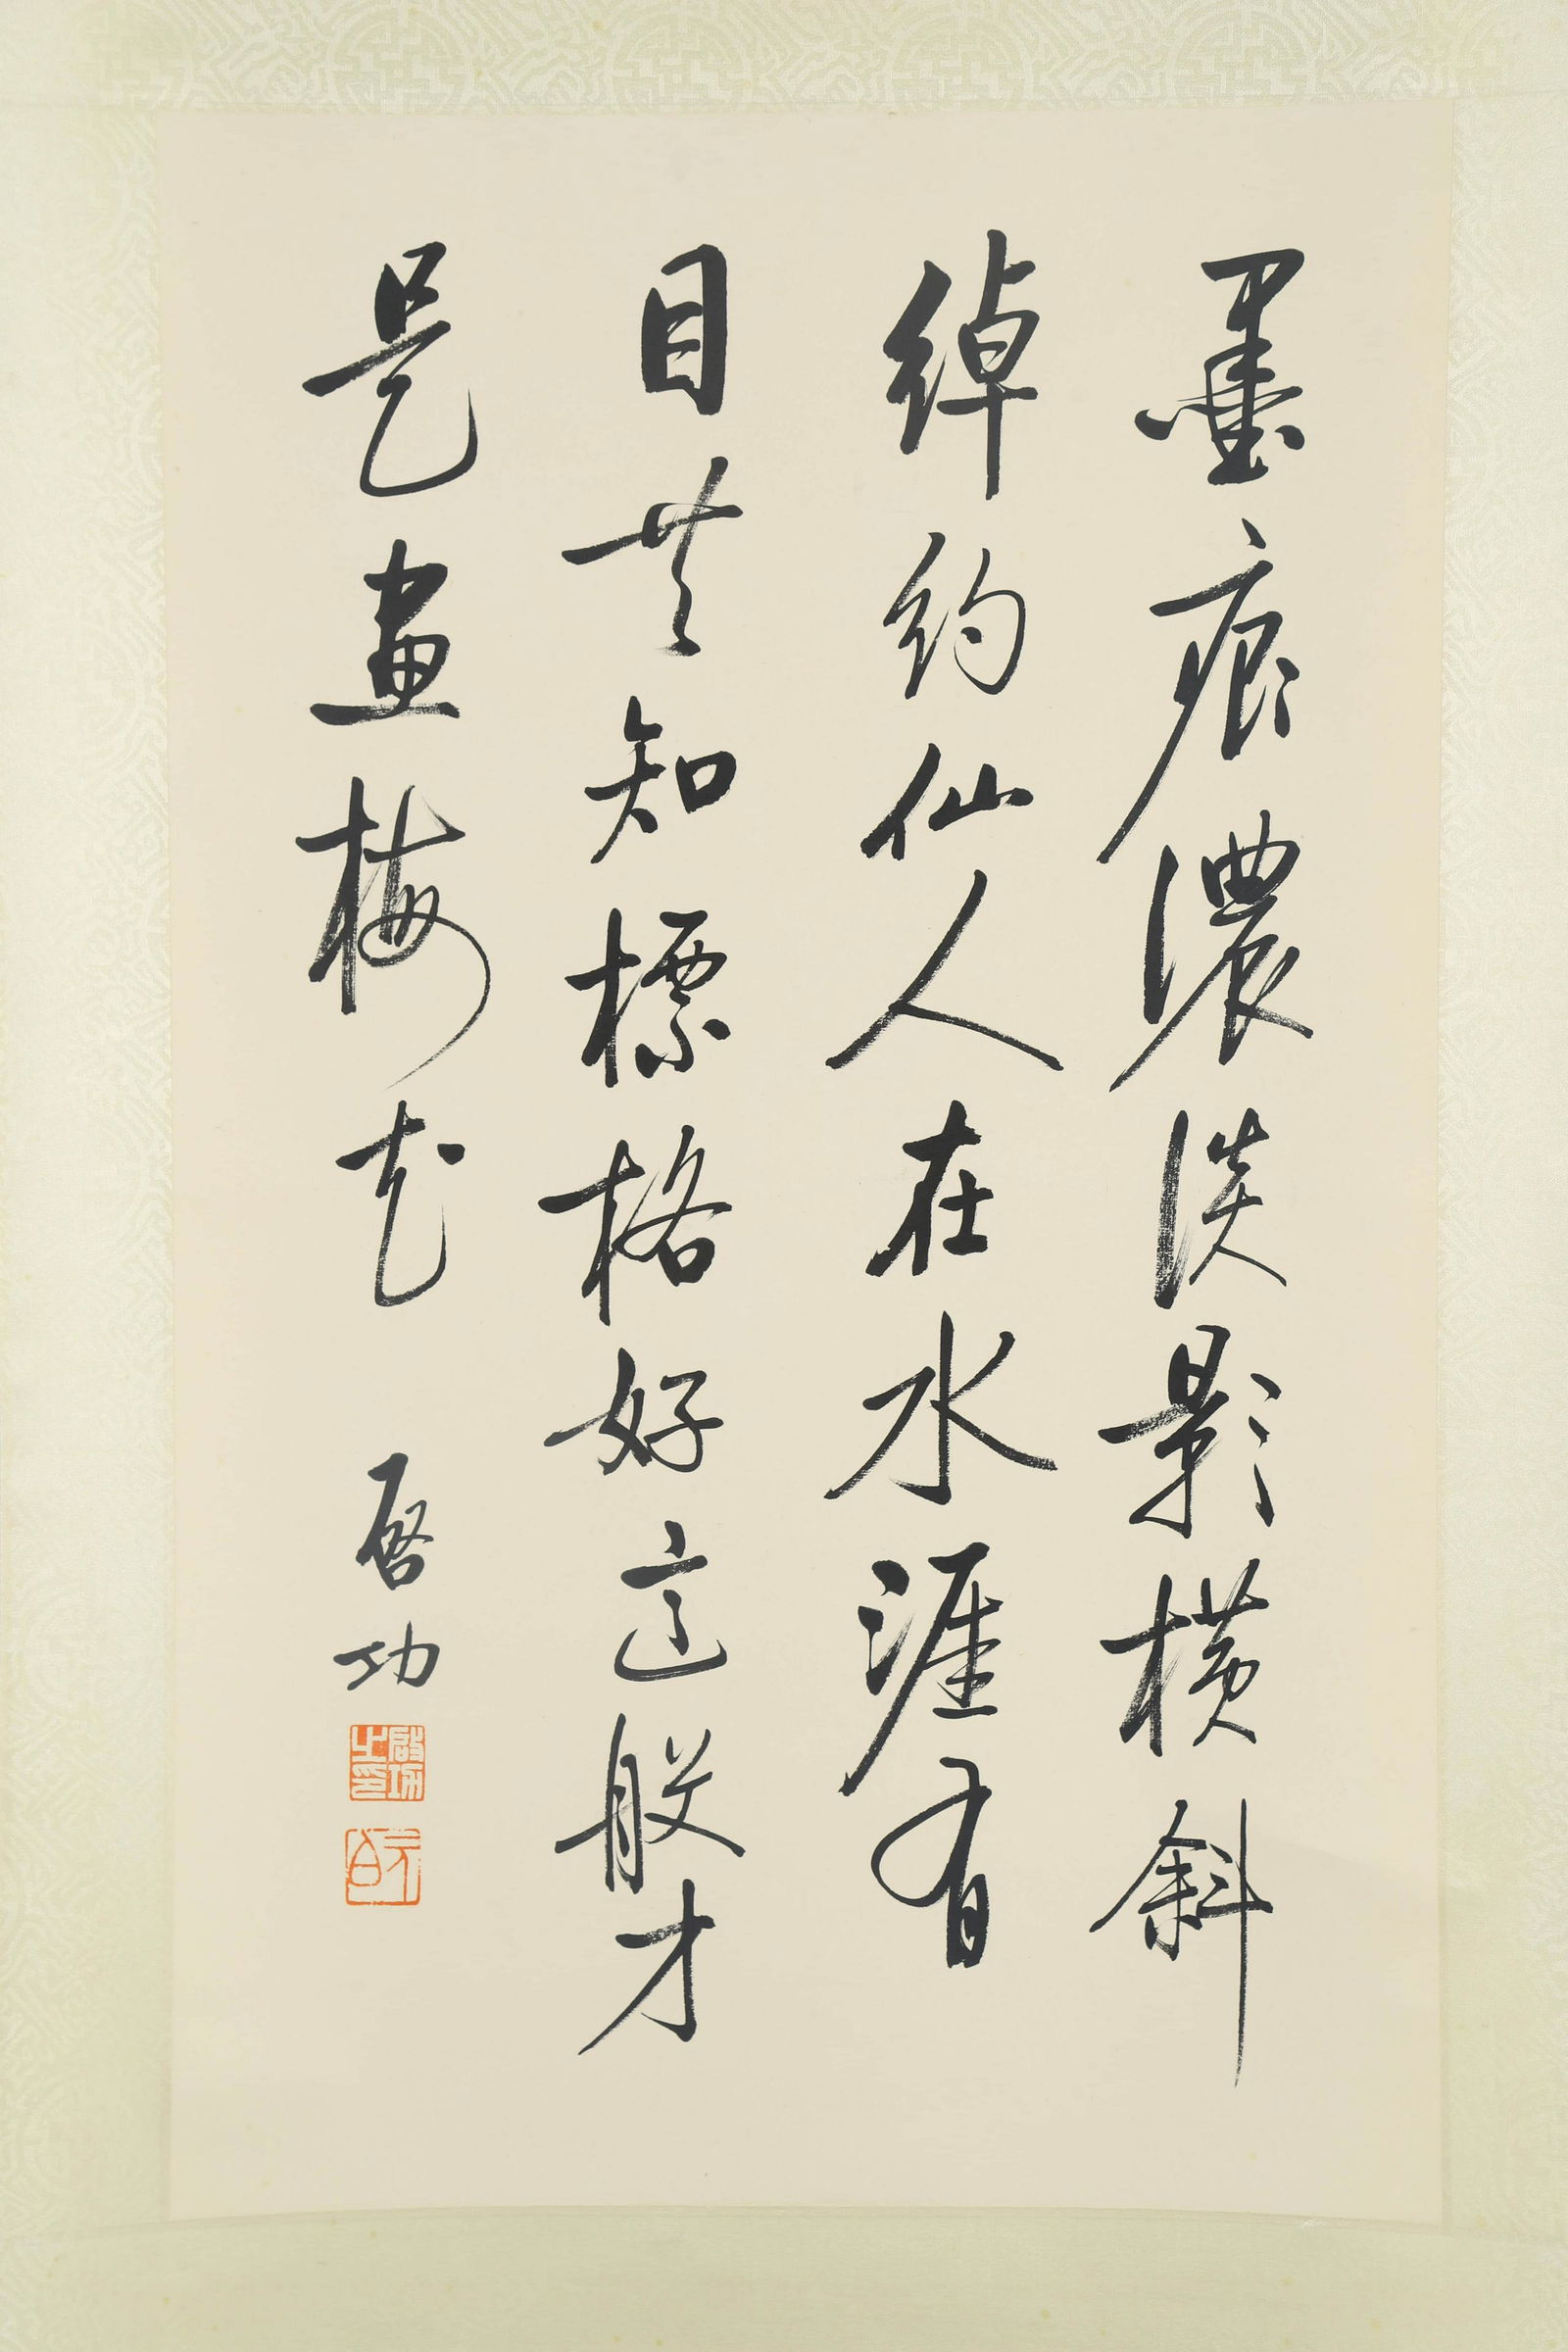 墨痕濃淡影橫斜
綽約仙人在水涯有
目共知標格好這般才
是畫梅花
啓功
啟功之印
元白